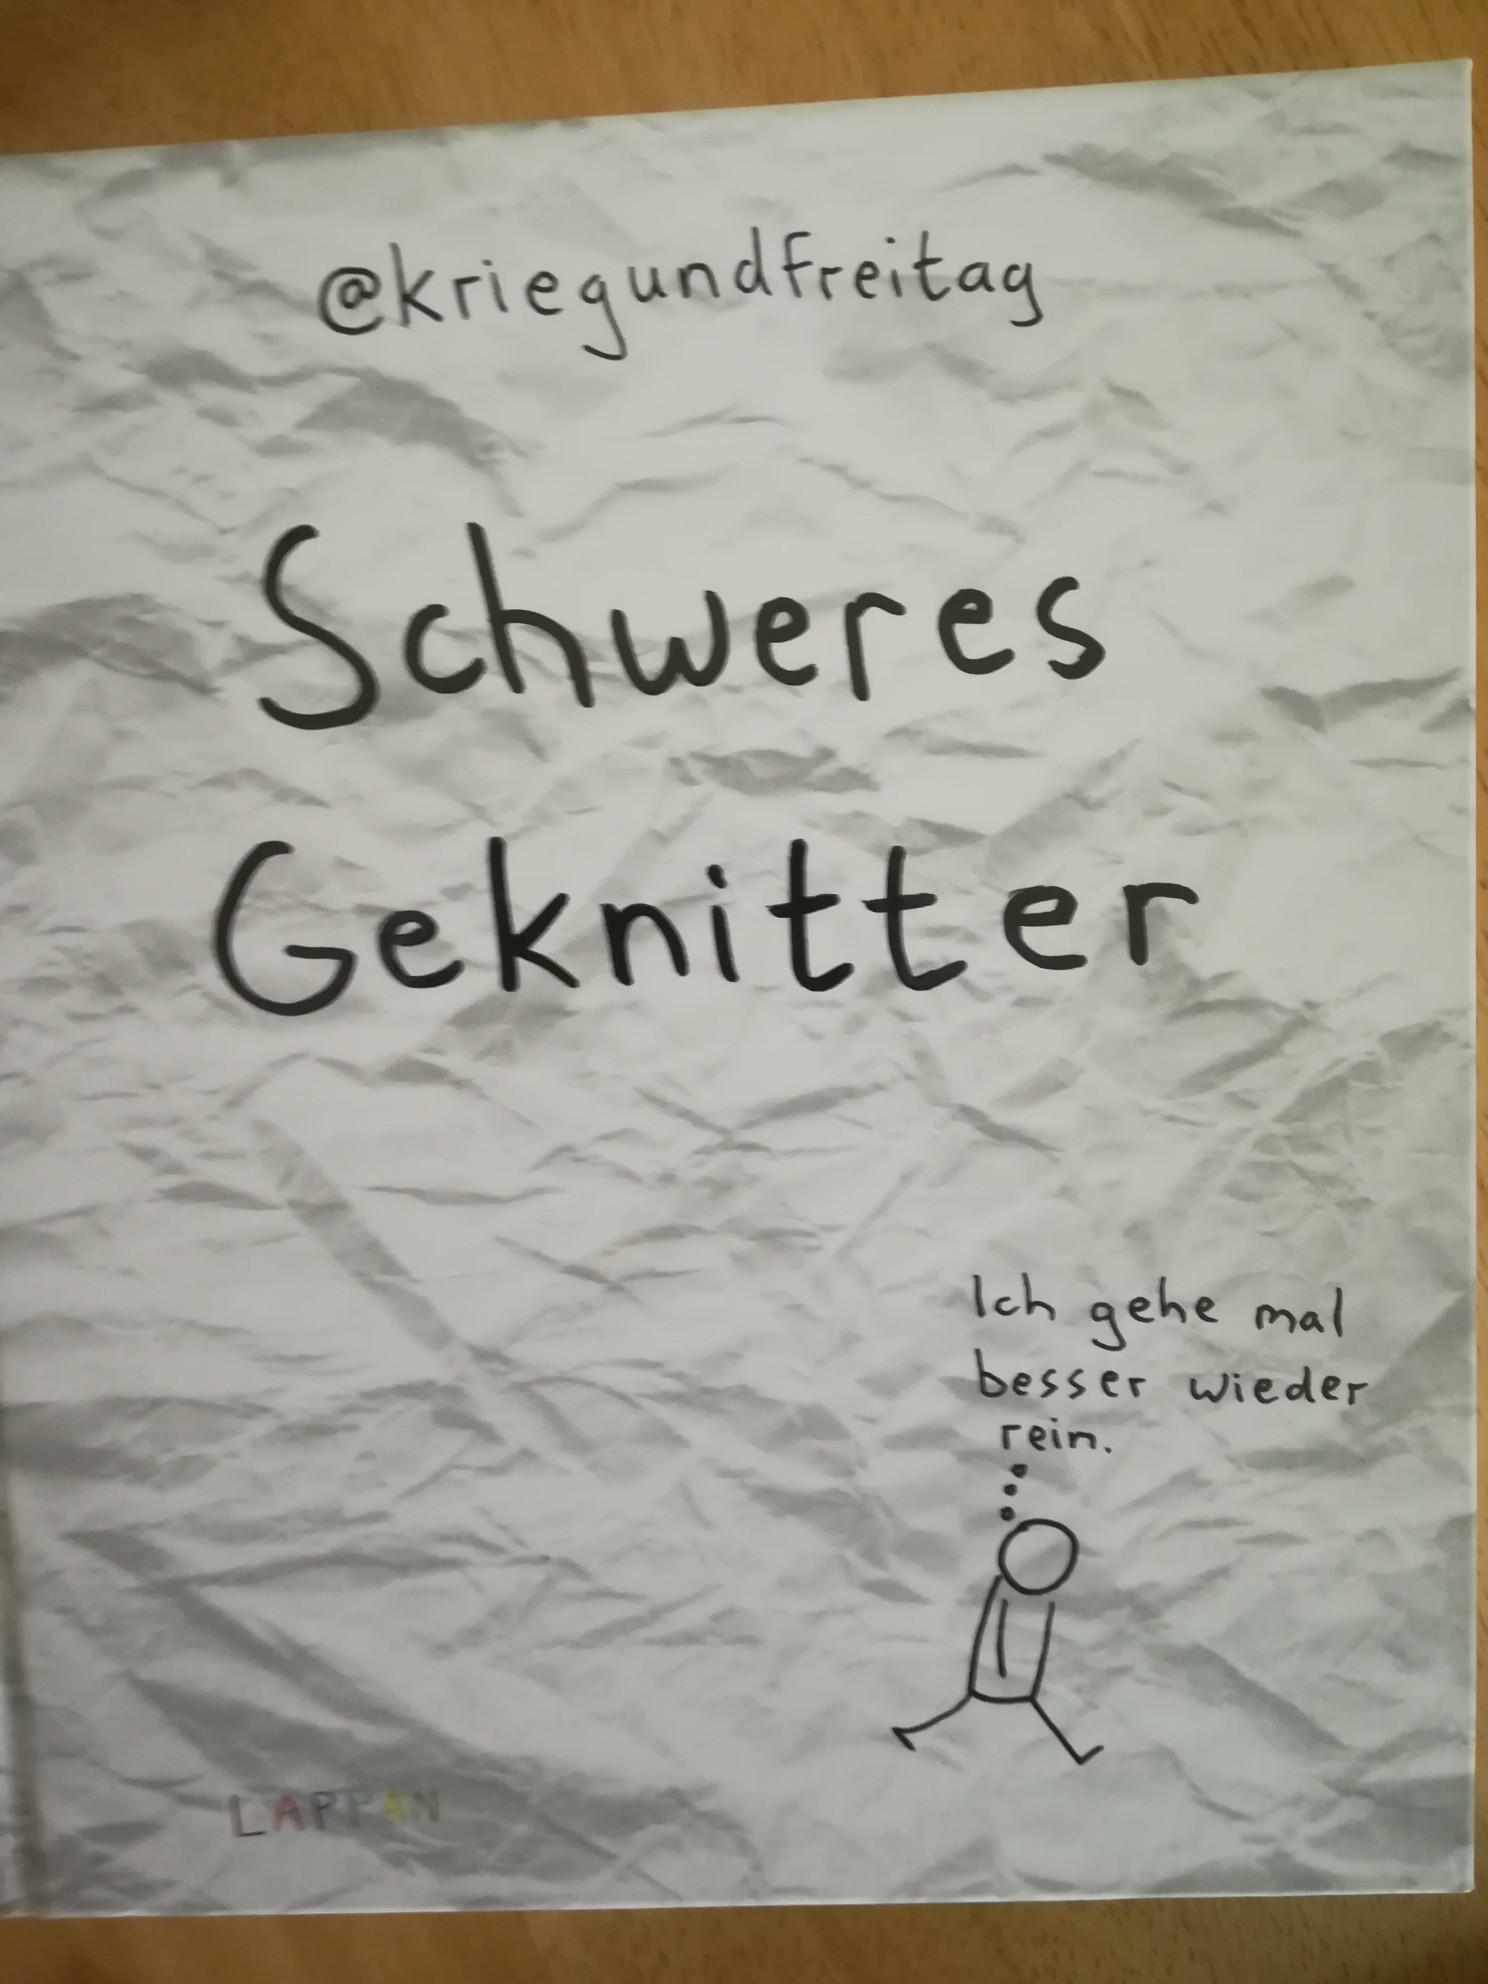 @kriegundfreitag
Schweres
Geknitter
Ich gehe mal
besser wieder
rein.
LAPPAN